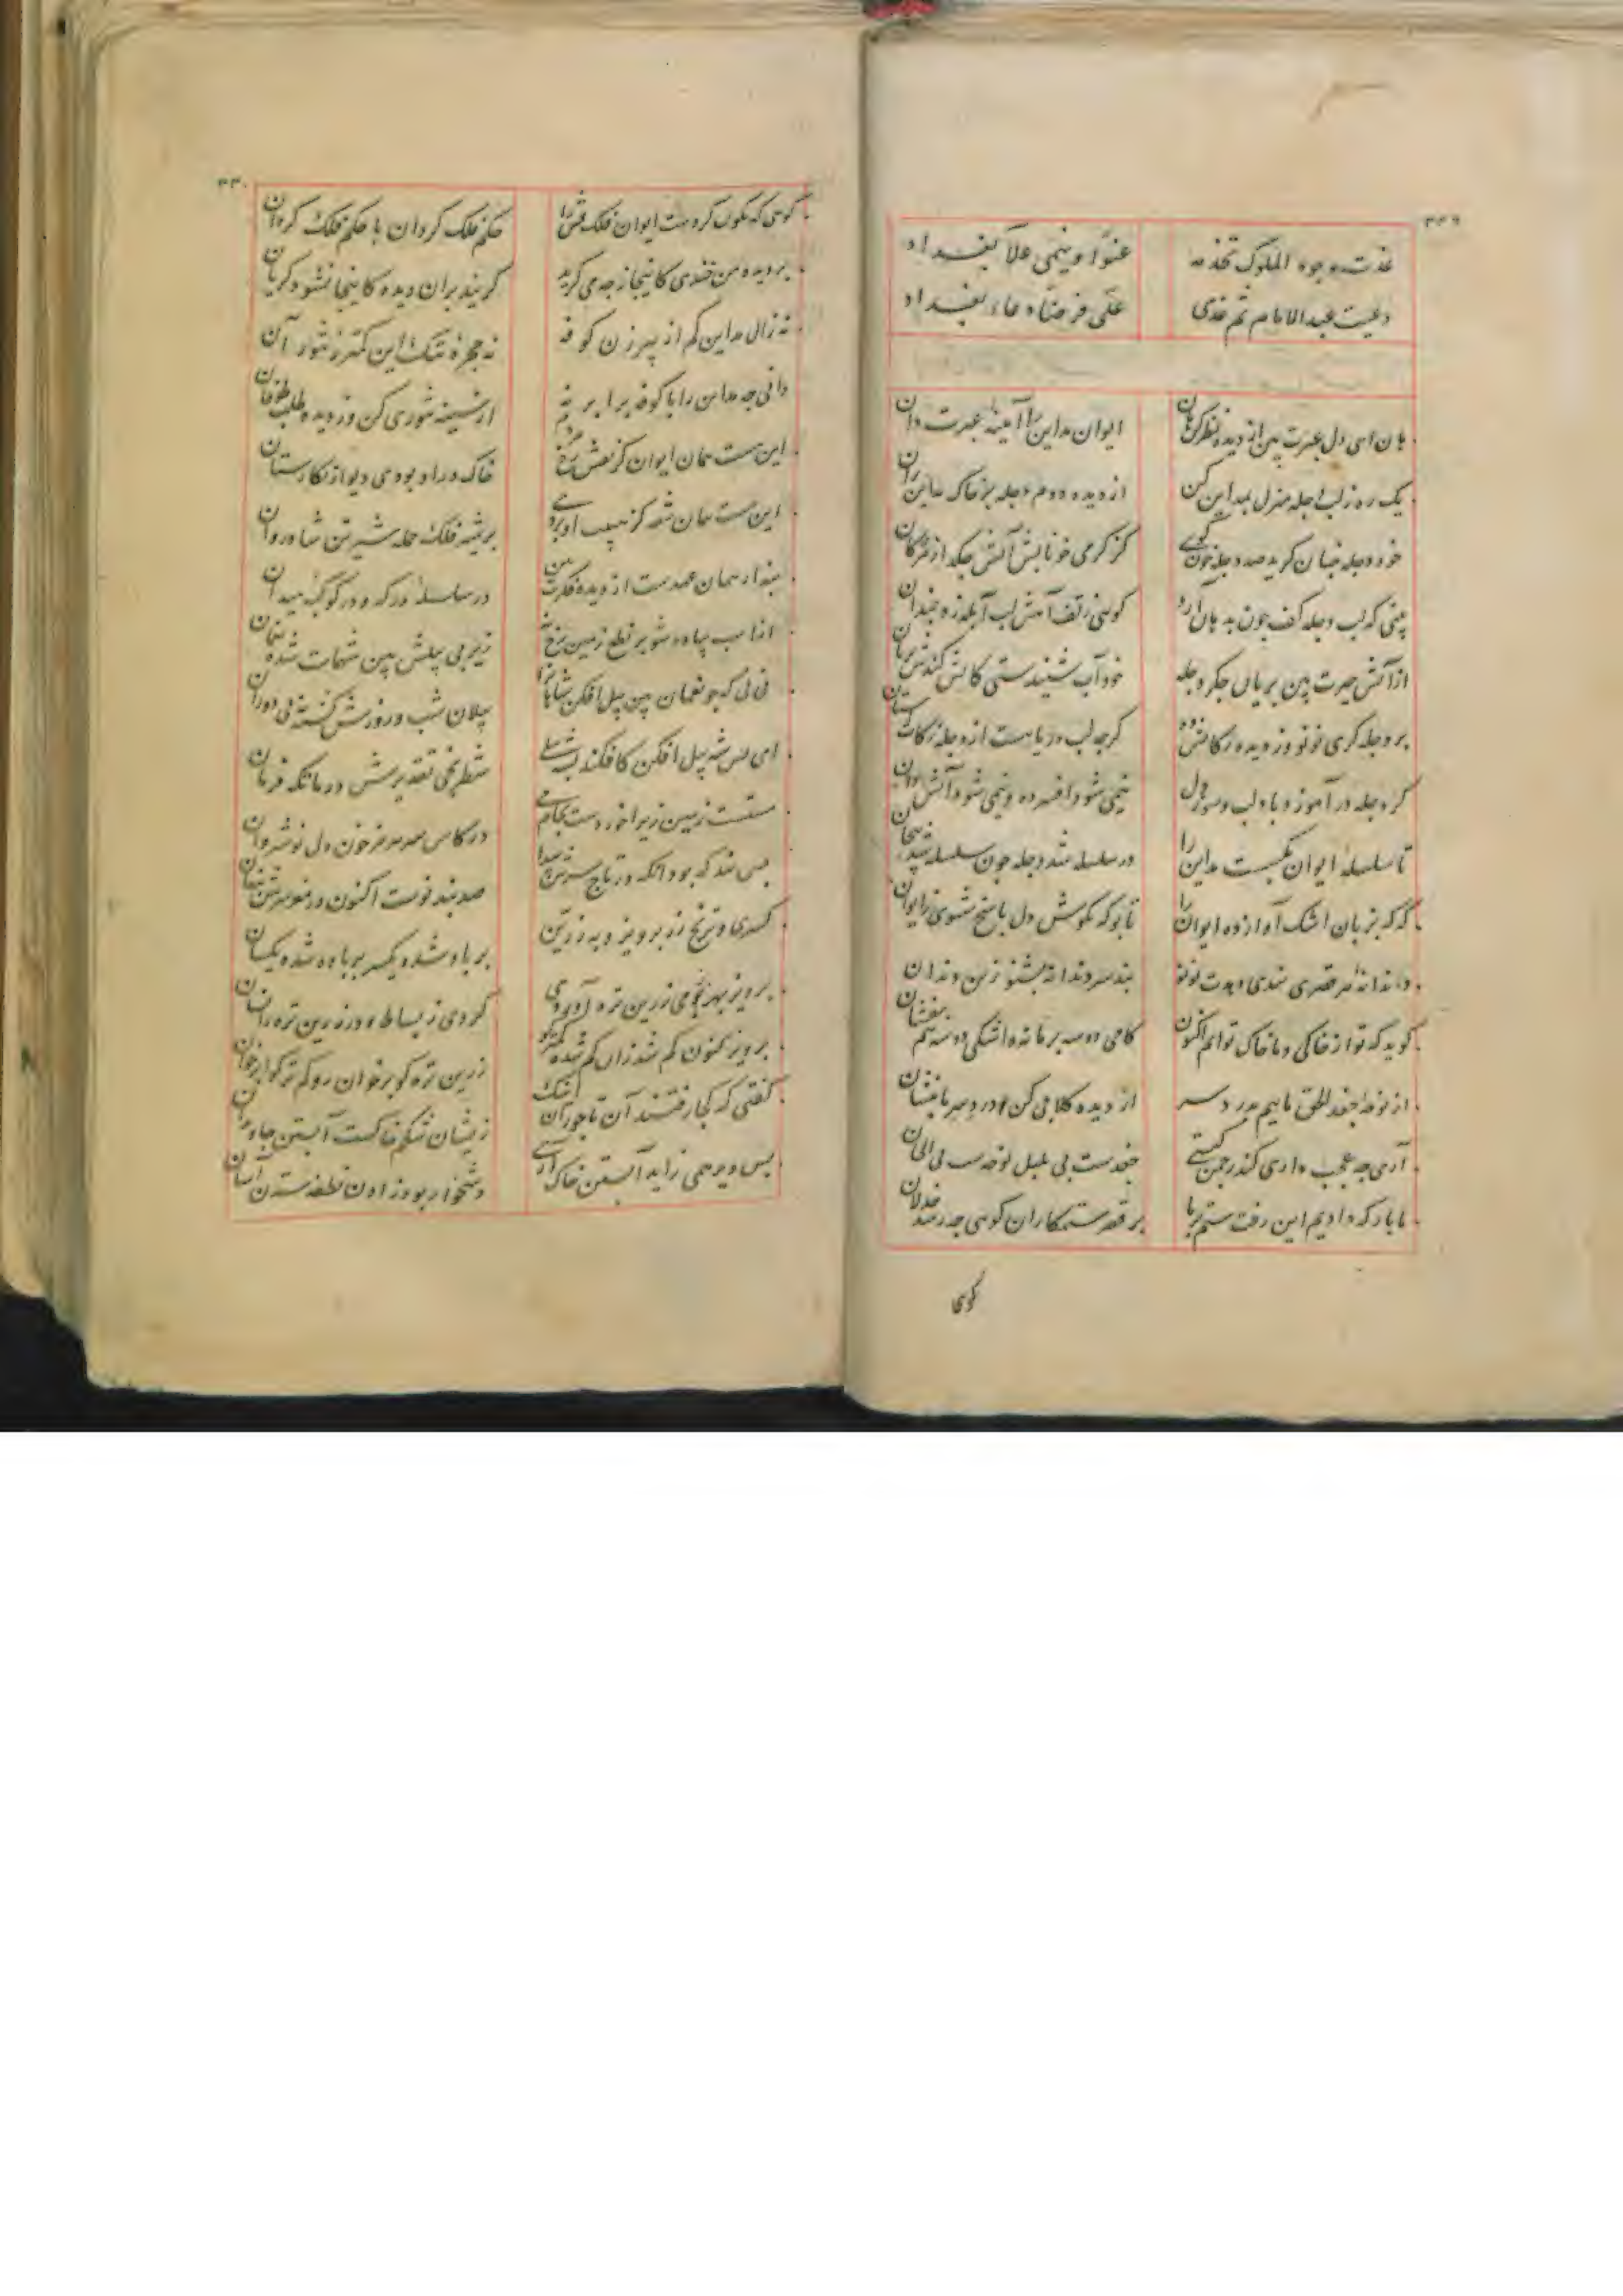 ۳۲۹
غدت وجوه الملوک تخدمه عنوا وینمی علا بغداد
دعیت عبد الامام ثم غدی علی فرضا دعاء بغداد
هان ای دل عبرت بین از دیده نظر کن هان ایوان مداین را آیینه عبرت دان
یک ره ز لب دجله منزل بمداین کن از دیده دوم دجله بر خاک مداین ران
خود دجله چنان گرید صد دجله خون گویی کز گرمی خونابش آتش چکد از مژگان
بینی که لب دجله کف چون بدهان آرد گویی ز تف آهش لب آبله زد چندان
از آتش حسرت بین بریان جگر دجله خود آب شنیدستی کاتش کندش بریان
بر دجله گری نونو وز دیده زکاتش ده گرچه لب دریا هست از دجله زکات استان
گر دجله در آموزد باد لب و سوز دل نیمی شود افسرده و نیمی شود آتش دان
تا سلسله ایوان بگسست مداین را در سلسله شد دجله چون سلسله شد پیچان
گه گه بزبان اشک آواز ده ایوان را تا بو که بگوش دل پاسخ شنوی ز ایوان
دندانه هر قصری پندی دهدت نونو پند سر دندانه بشنو ز بن دندان
گوید که تو از خاکی و ما خاک توایم اکنون گامی دو سه بر ما نه و اشکی دو سه هم بفشان
از نوحه جغد الحق ماییم بدرد سر از دیده گلابی کن درد سر ما بنشان
آری چه عجب داری کندر چمن گیتی جغدست پی بلبل نوحه ست پی الحان
ما بارگه دادیم این رفت ستم بر ما بر قصر ستمکاران گویی چه رسد خذلان
گویی
۳۳۰
گویی که نگون کردست ایوان فلک وش را حکم فلک گردان یا حکم فلک گردان
بر دیده من خندی کاینجا ز چه می گرید گریند بران دیده کاینجا نشود گریان
نه زال مداین کم از پیر زن کوفه نه حجره تنگ این کمتر ز تنور آن
دانی چه مداین را با کوفه برابر نه از سینه تنوری کن وز دیده طلب طوفان
این هست همان ایوان کز نقش رخ مردم خاک در او بودی دیوار نگارستان
این هست همان صفه کز هیبت او بردی بر شیر فلک حمله شیر تن شادروان
پندار همان عهدست از دیده فکرت بین در سلسله درگه در کوکبه میدان
از اسب پیاده شو بر نطع زمین رخ نه زیر پی پیلش بین شهمات شده نعمان
نی نی که چو نعمان بین پیل افکن شاهانرا پیلان شب و روزش کشته پی دوران
ای بس شه پیل افکن کافکند بشه پیلی شطرنجی تقدیرش در ماتگه فرمان
مستست زمین زیرا خوردست بجای می در کاس سر هرمز خون دل نوشروان
بس پند که بود آنگه در تاج سرش پیدا صد پند نوست اکنون در مغز سرش پنهان
کسری و ترنج زر پرویز و به زرین بر باد شده یکسر بر باد شده یکسان
پرویز بهر بومی زرین تره آوردی کردی ز بساط زر زرین تره را بستان
پرویز کنون گم شد زان گم شده کمتر گو زرین تره کو بر خوان رو کم ترکوا بر خوان
گفتی که کجا رفتند آن تاجوران اینک زیشان شکم خاکست آبستن جاویدان
بس دیر همی زاید آبستن خاک آری دشخوار بود زادن نطفه ستدن آسان